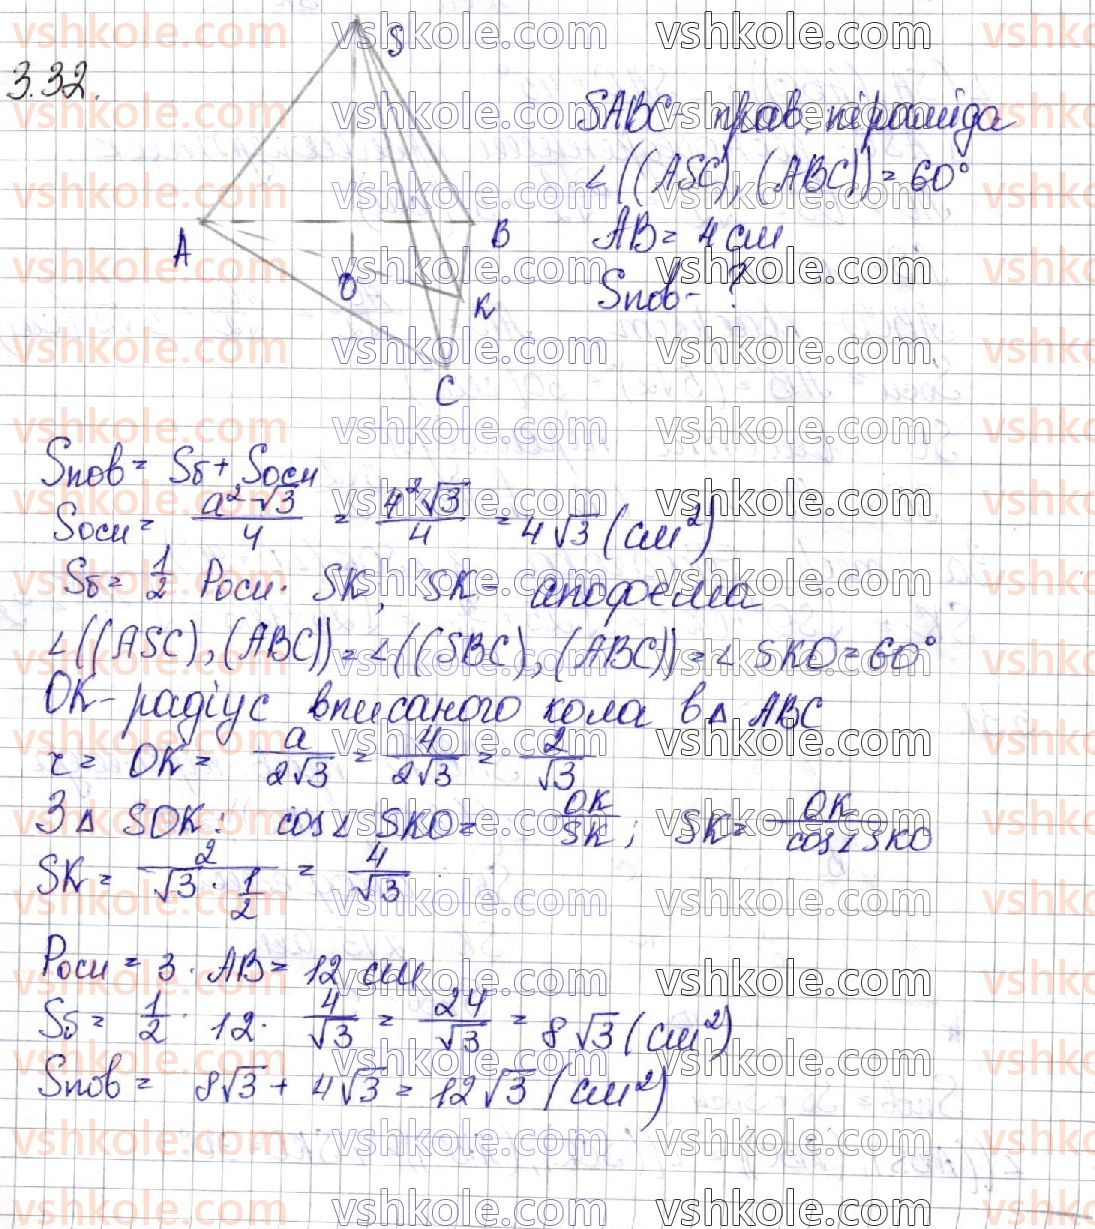 3.32.
S
A
B
O
K
C
SABC- прав. піраміда
∠((ASC), (ABC)) = 60°
AB = 4 см
Sпов - ?
Sпов = Sб + Sосн
Sосн = a²√3/4 = 4²√3/4 = 4√3 (см²)
Sб = 1/2 Pосн · SK, SK - апофема
∠((ASC), (ABC)) = ∠((SBC), (ABC)) = ∠ SKO = 60°
OK - радіус вписаного кола в △ ABC
r = OK = a/2√3 = 4/2√3 = 2/√3
З △ SOK: cos∠ SKO = OK/SK; SK = OK/cos∠SKO
SK = 2/√3 · 1/2 = 4/√3
Pосн = 3 · AB = 12 см
Sб = 1/2 · 12 · 4/√3 = 24/√3 = 8√3 (см²)
Sпов = 8√3 + 4√3 = 12√3 (см²)
vshkole.com